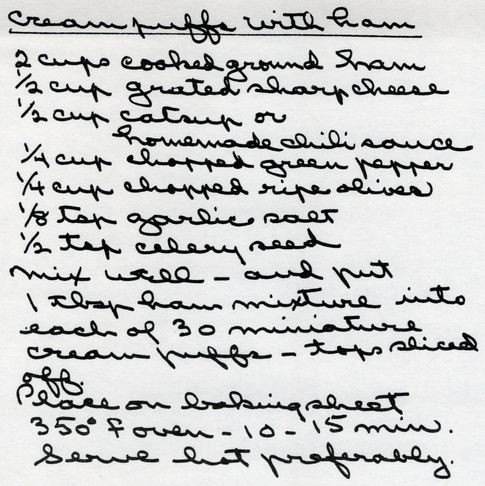 cream puffs with ham
2 cups cooked ground ham
1/2 cup grated sharp cheese
1/2 cup catsup or
homemade chili sauce
1/4 cup chopped green pepper
1/4 cup chopped ripe olives
1/8 tsp garlic salt
1/2 tsp celery seed
mix well - and put
1 tbsp ham mixture into
each of 30 miniature
cream puffs - tops sliced
off.
Place on baking sheet
350° F oven - 10 - 15 min.
Serve hot preferably.